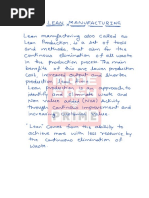 LEAN MANUFACTURING
Lean manufacturing also called as
Lean Production is a set of tools
and methods that aim for the
continuous elimination of all waste
in the production process. The main
benefits of this are lower production
cost, increased output and shorter
production lead times.
Lean manufacturing approach is to
identify and eliminate waste and
Non value added (NVA) activity
through continuous improvement and
increasing customer value.
'Lean' comes from the ability to
achieve more with less resources by
the continuous elimination of
waste.